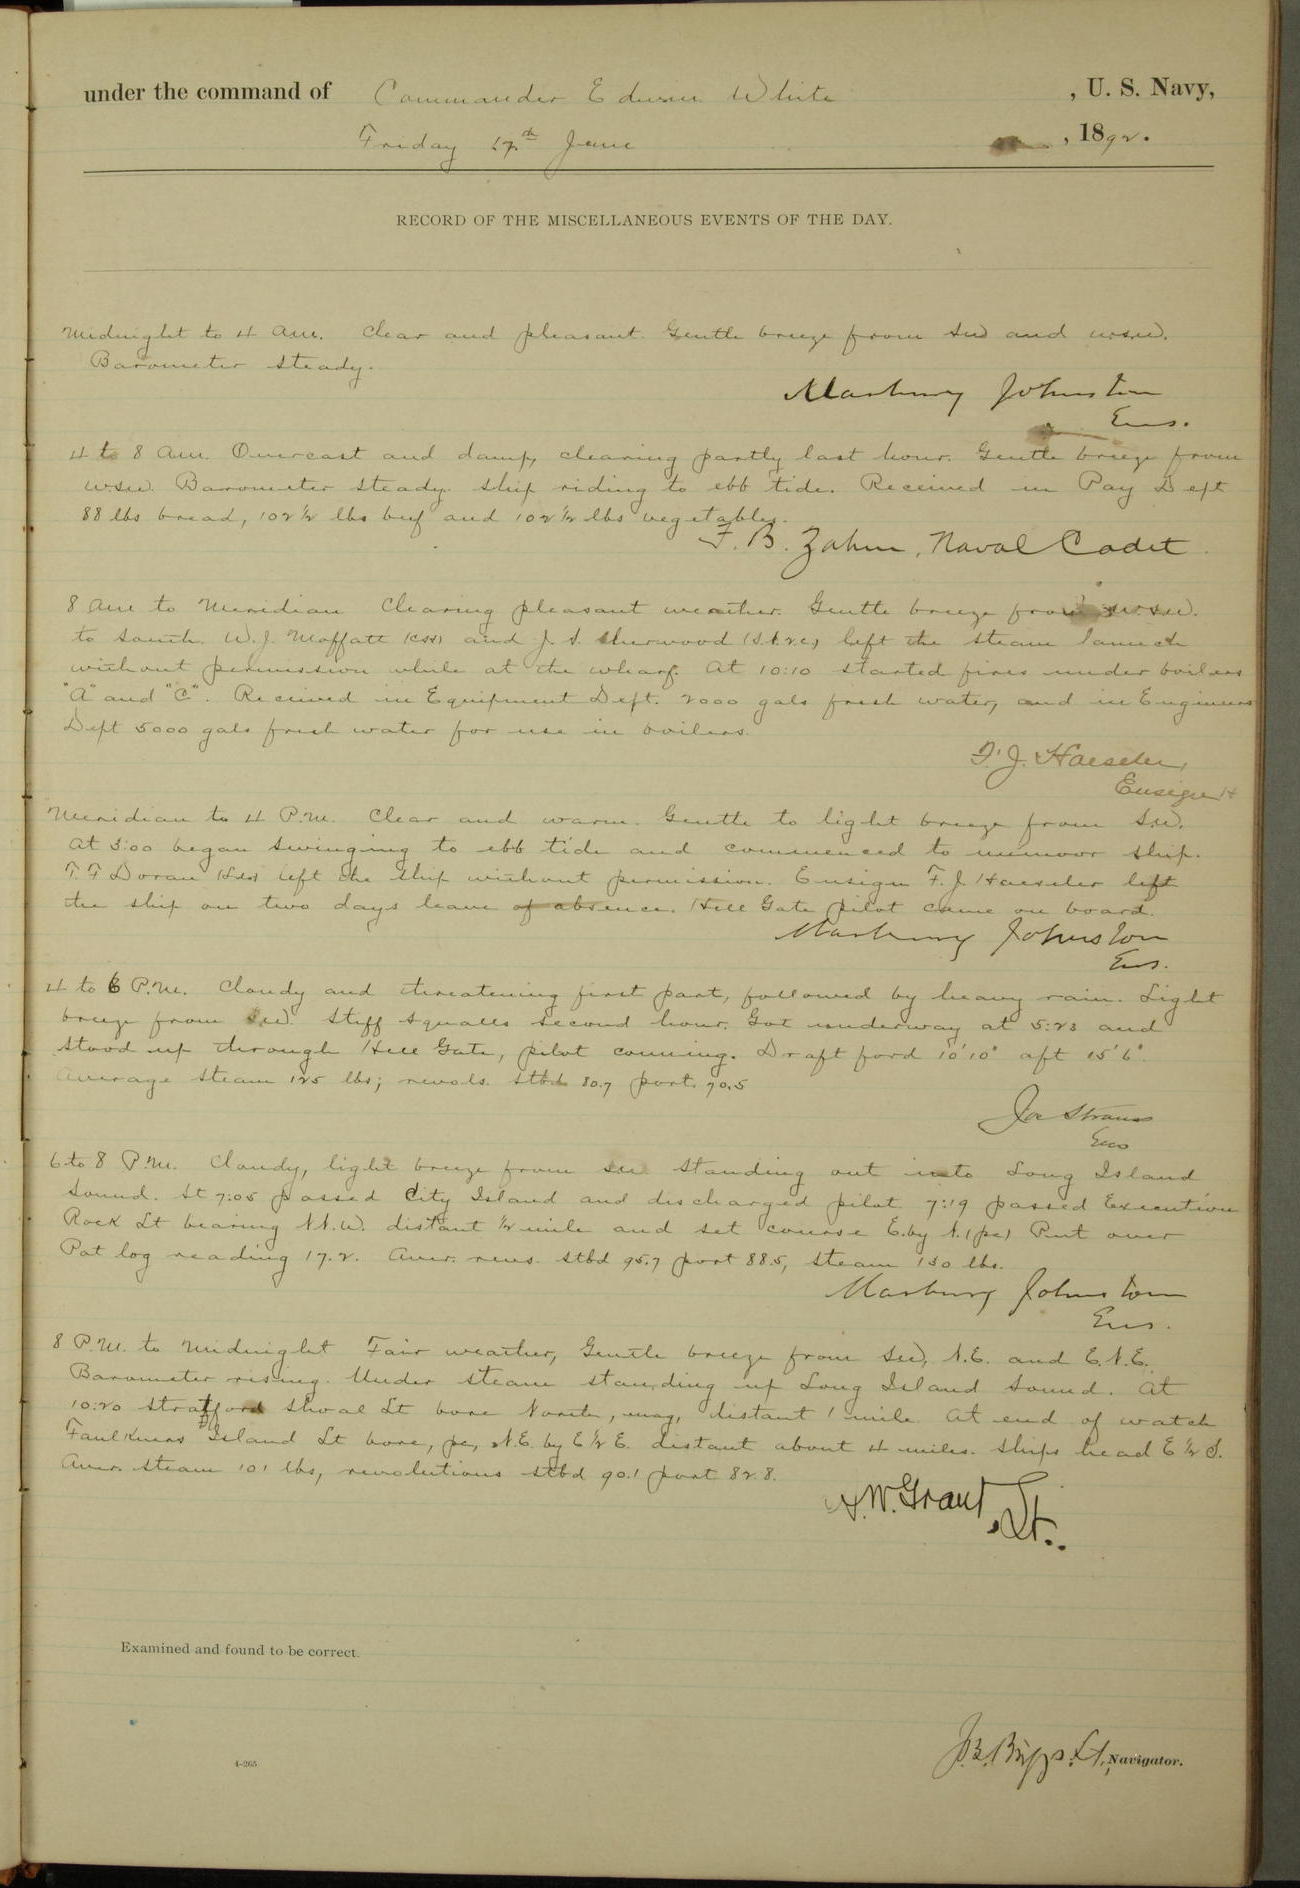 under the command of Commander Edwin White , U. S. Navy,
Friday 17th June , 1892.
RECORD OF THE MISCELLANEOUS EVENTS OF THE DAY.
Midnight to 4 am. Clear and pleasant. Gentle breeze from SW and WSW.
Barometer steady.
Marbury Johnston
Ens.
4 to 8 am. Overcast and damp, clearing partly last hour. Gentle breeze from
WSW. Barometer steady. Ship riding to ebb tide. Received in Pay Dept
88 lbs bread, 102 1/2 lbs beef and 102 1/2 lbs vegetables.
F. B. Zahm, Naval Cadet
8 am to Meridian Clearing pleasant weather. Gentle breeze from W.S.W.
to South. W. J. Moffatt and J. S. Sherwood left the steam launch
without permission while at the wharf. At 10:10 started fires under boilers
"A" and "C". Received in Equipment Dept. 2000 gals fresh water, and in Engineers
Dept 5000 gals fresh water for use in boilers.
F. J. Haeseler,
Ensign
Meridian to 4 P.M. Clear and warm. Gentle to light breeze from SW.
At 3:00 began swinging to ebb tide and commenced to unmoor ship.
F. F Doran (Lds) left the ship without permission. Ensign F. J. Haeseler left
the ship on two days leave of absence. Hell Gate pilot came on board.
Marbury Johnston
Ens.
4 to 6 P.M. Cloudy and threatening first part, followed by heavy rain. Light
breeze from SW. Stiff squalls second hour. Got underway at 5:23 and
stood up through Hell Gate, pilot conning. Draft ford 10' 10" aft 15' 6".
Average steam 125 lbs; revols. stbd 80.7 port. 70.5
Jos Strauss
Ens
6 to 8 P.M. Cloudy, light breeze from SW standing out into Long Island
Sound. At 7:05 passed City Island and discharged pilot. 7:19 passed Execution
Rock Lt bearing N.N.W. distant 1/2 mile and set course E. by N. (pc) Put over
Pat log reading 17.2. Aver. revs. stbd 95.7 port 88.5, steam 130 lbs.
Marbury Johnston
Ens.
8 P.M. to Midnight Fair weather, Gentle breeze from SW, N.E. and E.N.E.
Barometer rising. Under steam standing up Long Island Sound. At
10:20 Stratford Shoal Lt bore North, mag, distant 1 mile. At end of watch
Faulkners Island Lt bore, pc, N.E. by E 1/2 E. distant about 4 miles. Ships head E 1/2 S.
Aver. steam 101 lbs, revolutions stbd 90.1 port 82.8.
A. W. Grant, Lt.
Examined and found to be correct.
J. B. Briggs Lt, Navigator.
4-265